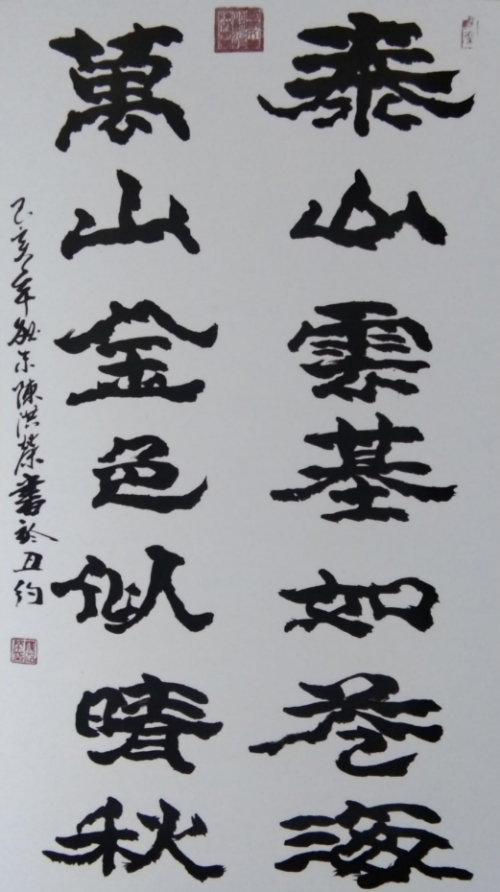 泰山雲基如卷海
萬山金色似晴秋
己亥年 陳洪榮書於丑約